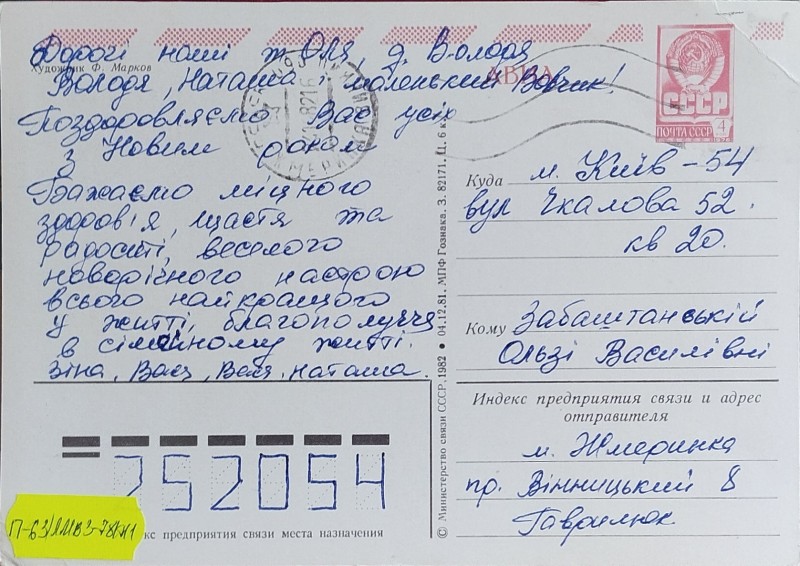 Дорогі наші т. Оля, д. Володя
Художник Ф. Марков
Володя, Наташа і маленький Вовчик!
АВИА
Поздоровляємо Вас усіх
з Новим роком
Бажаємо міцного
здоров'я, щастя та
радості, веселого
новорічного настрою
всього найкращого
у житті, благополуччя
в сімейному житті.
Зіна, Вася, Валя, Наташа.
СССР
ПОЧТА СССР 4
Куда м. Київ-54
вул Чкалова 52.
кв 20.
Кому Забаштанській
Ользі Василівні
Индекс предприятия связи и адрес
отправителя
м. Жмеринка
пр. Вінницький 8
Гаврилюк
© Министерство связи СССР, 1982 • 04.12.81. МПФ Гознака. З. 82171. Ц. 6 к.
252054
екс предприятия связи места назначения